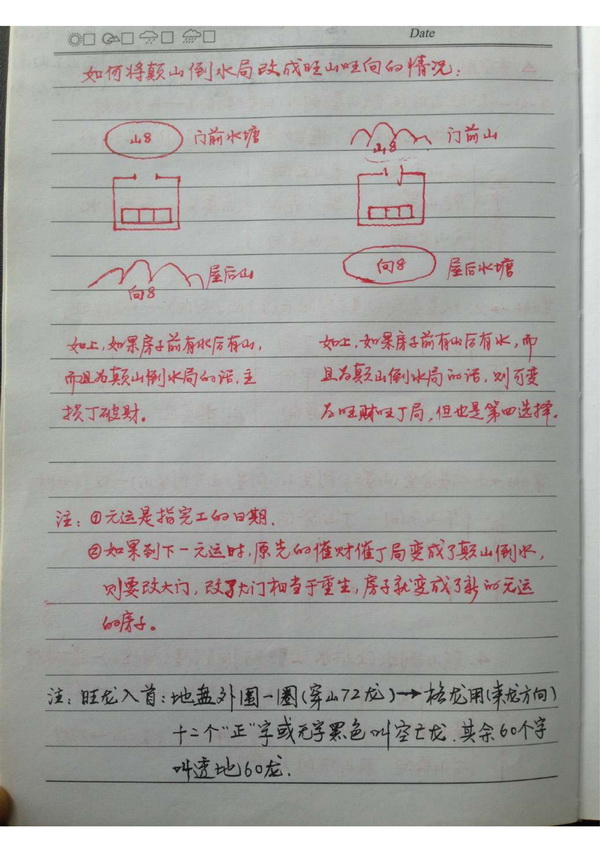 Date
如何将颠山倒水局改成旺山旺向的情况：
山8 门前水塘
山8 门前山
向8 屋后山
向8 屋后水塘
如上，如果房子前有水后有山，
而且为颠山倒水局的话，主
损丁破财。
如上，如果房子前有山后有水，而
且为颠山倒水局的话，则可变
为旺财旺丁局，但也是第四选择。
注：①元运是指完工的日期．
②如果到下一元运时，原先的催财催丁局变成了颠山倒水，
则要改大门，改了大门相当于重生，房子就变成了新的元运
的房子。
注：旺龙入首：地盘外圈一圈(穿山72龙)→格龙用(来龙方向)
十二个“正”字或无字黑色叫空亡龙．其余60个字
叫透地60龙．